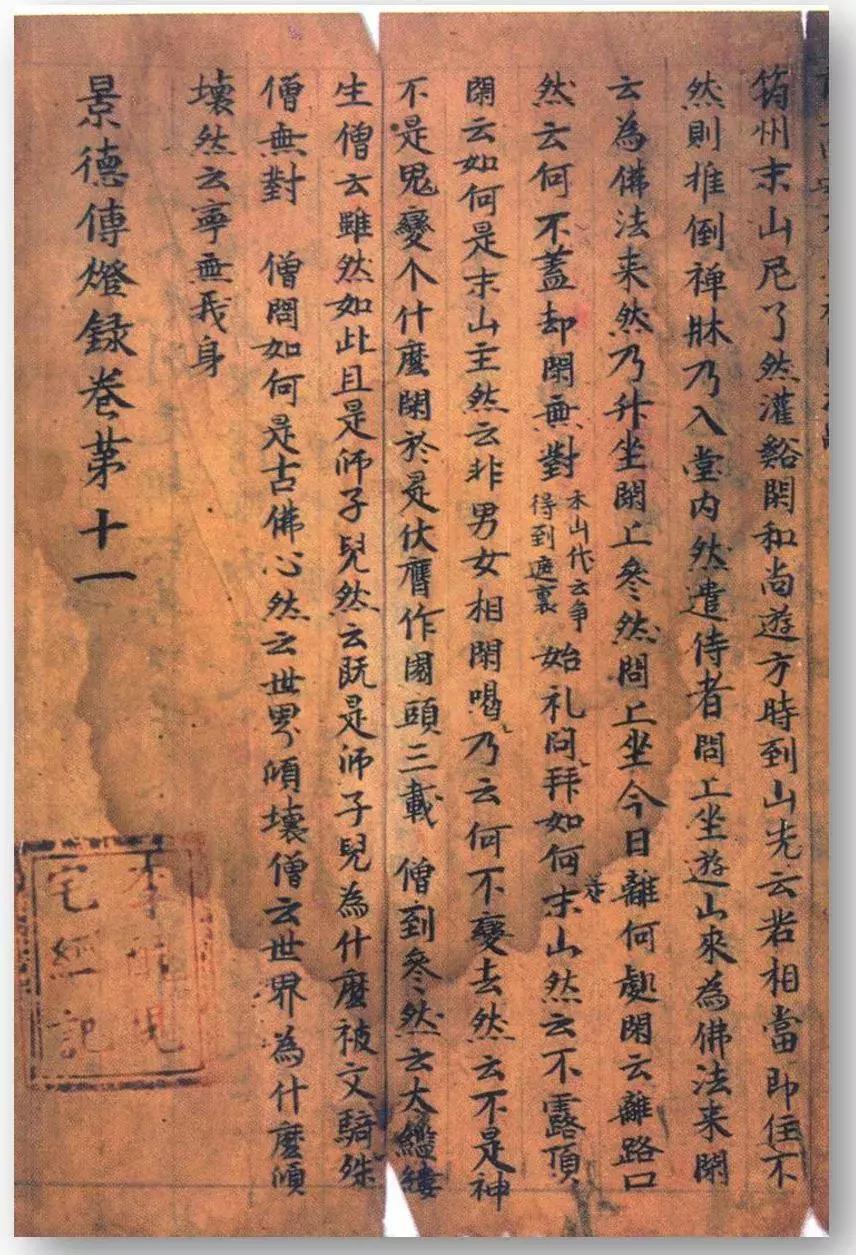 筠州末山尼了然灌谿閑和尚遊方時到山先云若相當即住不
然則推倒禅牀乃入堂内然遣侍者問上坐遊山來為佛法来閑
云為佛法来然乃升坐閑上参然問上坐今日離何處閑云離路口
然云何不盖却閑無對末山代云争得到遮裏始礼問拜如何是末山然云不露頂
閑云如何是末山主然云非男女相閑喝乃云何不變去然云不是神
不是鬼變个什麼閑於是伏膺作園頭三載 僧到参然云太繿縷
生僧云雖然如此且是师子兒然云既是师子兒為什麼被文殊騎
僧無對 僧問如何是古佛心然云世界傾壊僧云世界為什麼傾
壊然云寧無我身
景德傳燈録卷第十一
李
宅經記